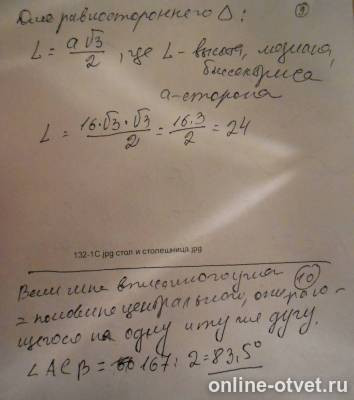 Для равностороннего Δ: 9
L = a√3/2, где L - высота, медиана,
биссектриса,
a - сторона
L = 16·√3·√3/2 = 16·3/2 = 24
132-1C.jpg стол и столешница.jpg
Величина вписанного угла 10
= половине центрального, опирающе-
гося на одну и ту же дугу.
∠ACB = 167 : 2 = 83,5°
online-otvet.ru